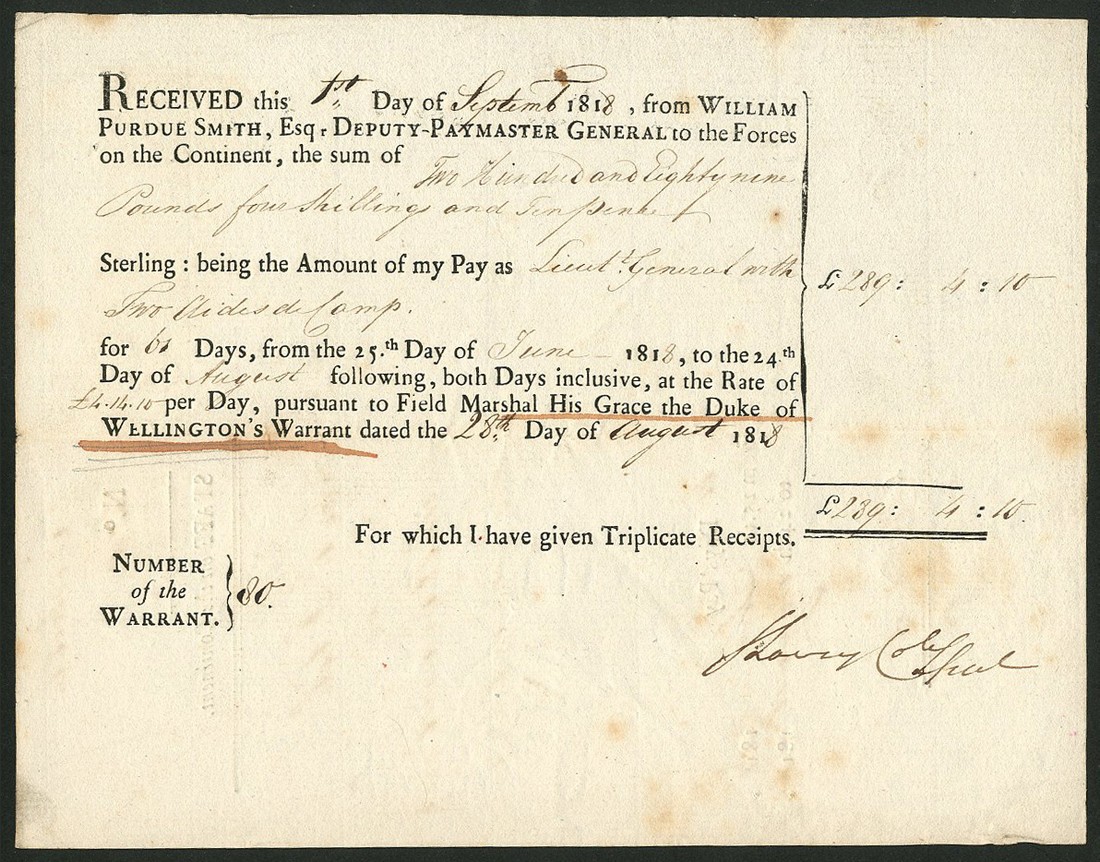 RECEIVED this 1st Day of Septemb 1818, from WILLIAM
PURDUE SMITH, Esqr DEPUTY-PAYMASTER GENERAL to the Forces
on the Continent, the sum of
Two Hundred and Eighty nine
Pounds four Shillings and Ten pence
Sterling: being the Amount of my Pay as Lieut.t General with
Two Aides de Camp.
£289: 4: 10
for 61 Days, from the 25.th Day of June 1818, to the 24.th
Day of August following, both Days inclusive, at the Rate of
£4.14.10 per Day, pursuant to Field Marshal His Grace the Duke of
WELLINGTON'S Warrant dated the 28th Day of August 1818
£289: 4: 10.
For which I have given Triplicate Receipts.
NUMBER
of the
WARRANT. } 80.
Lowry Cole